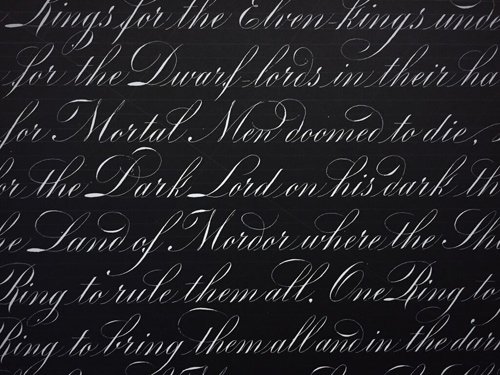 Rings for the Elven-kings und
for the Dwarf-lords in their ha
for Mortal Men doomed to die,
or the Dark Lord on his dark th
he Land of Mordor where the Sh
Ring to rule them all. One Ring to
Ring to bring them all and in the dark